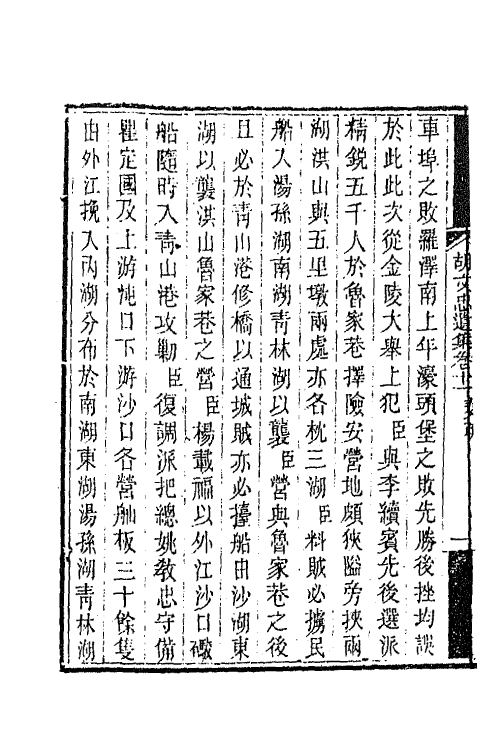 胡文忠遺集卷十一
車埠之敗羅澤南上年濠頭堡之敗先勝後挫均誤
於此此次從金陵大舉上犯臣與李續賓先後選派
精銳五千人於魯家巷擇險安營地頗狹隘旁挾兩
湖洪山與五里墩兩處亦各枕三湖臣料賊必擄民
船入湯孫湖南湖青林湖以襲臣營與魯家巷之後
且必於青山港修橋以通城賊亦必擡船由沙湖東
湖以襲洪山魯家巷之營臣楊載福以外江沙口礮
船隨時入青山港攻勦臣復調派把總姚敎忠守備
瞿定國及上游沌口下游沙口各營舢板三十餘隻
由外江挽入內湖分布於南湖東湖湯孫湖青林湖